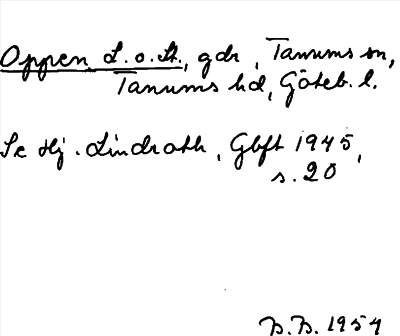 Oppen L. o. St., gdr, Tanums sn,
Tanums hd, Göteb. l.
Se Hj. Lindroth, Gbft 1945,
s. 20
B.B. 1954